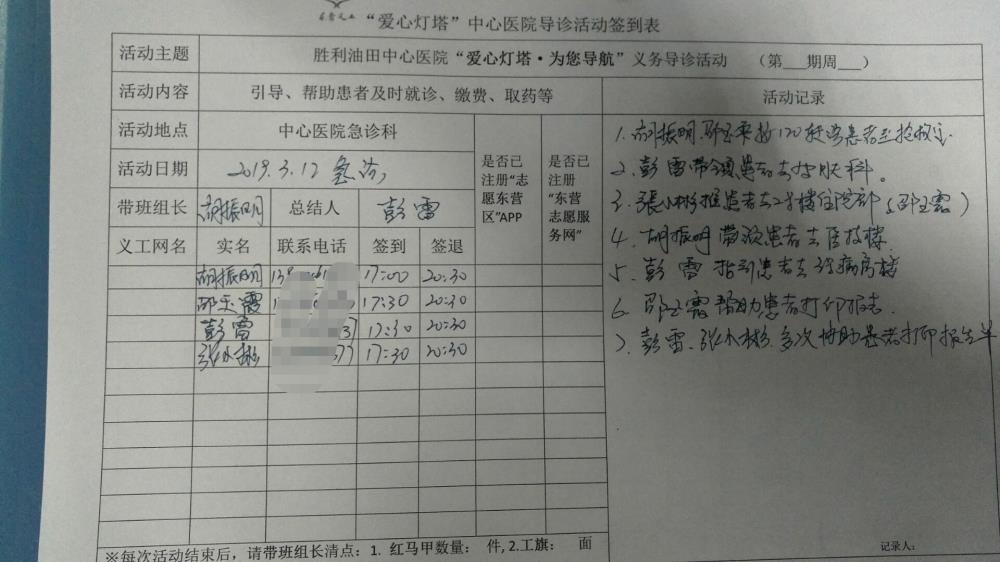 “爱心灯塔”中心医院导诊活动签到表
活动主题 胜利油田中心医院“爱心灯塔·为您导航”义务导诊活动 （第___期周___）
活动内容 引导、帮助患者及时就诊、缴费、取药等 活动记录
活动地点 中心医院急诊科
是否已注册“志愿东营区”APP
是否已注册“东营志愿服务网”
活动日期 2019.3.12 急诊
带班组长 胡振明 总结人 彭雷
义工网名 实名 联系电话 签到 签退
胡振明 17:00 20:30
邵玉霞 17:30 20:30
彭雷 17:30 20:30
张小彬 17:30 20:30
1. 胡振明、邵玉霞 120 患者至抢救室
2. 彭雷带领患者去 科。
3. 張小彬推患者去2号楼住院部（邵玉霞）
4. 胡振明带领患者去医技楼
5. 彭雷指引患者去 病房楼
6. 邵玉霞帮助患者打印报告
7. 彭雷、张小彬多次协助患者打印报告单
※每次活动结束后，请带班组长清点：1. 红马甲数量： 件, 2.工旗： 面
记录人：